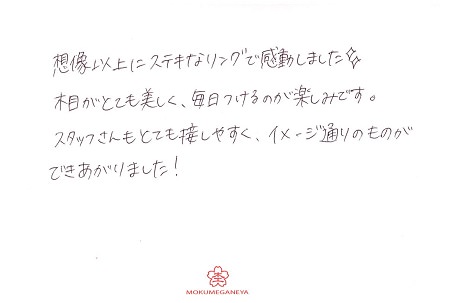 想像以上にステキなリングで感動しました✨
木目がとても美しく、毎日つけるのが楽しみです。
スタッフさんもとても接しやすく、イメージ通りのものが
できあがりました！
MOKUMEGANEYA